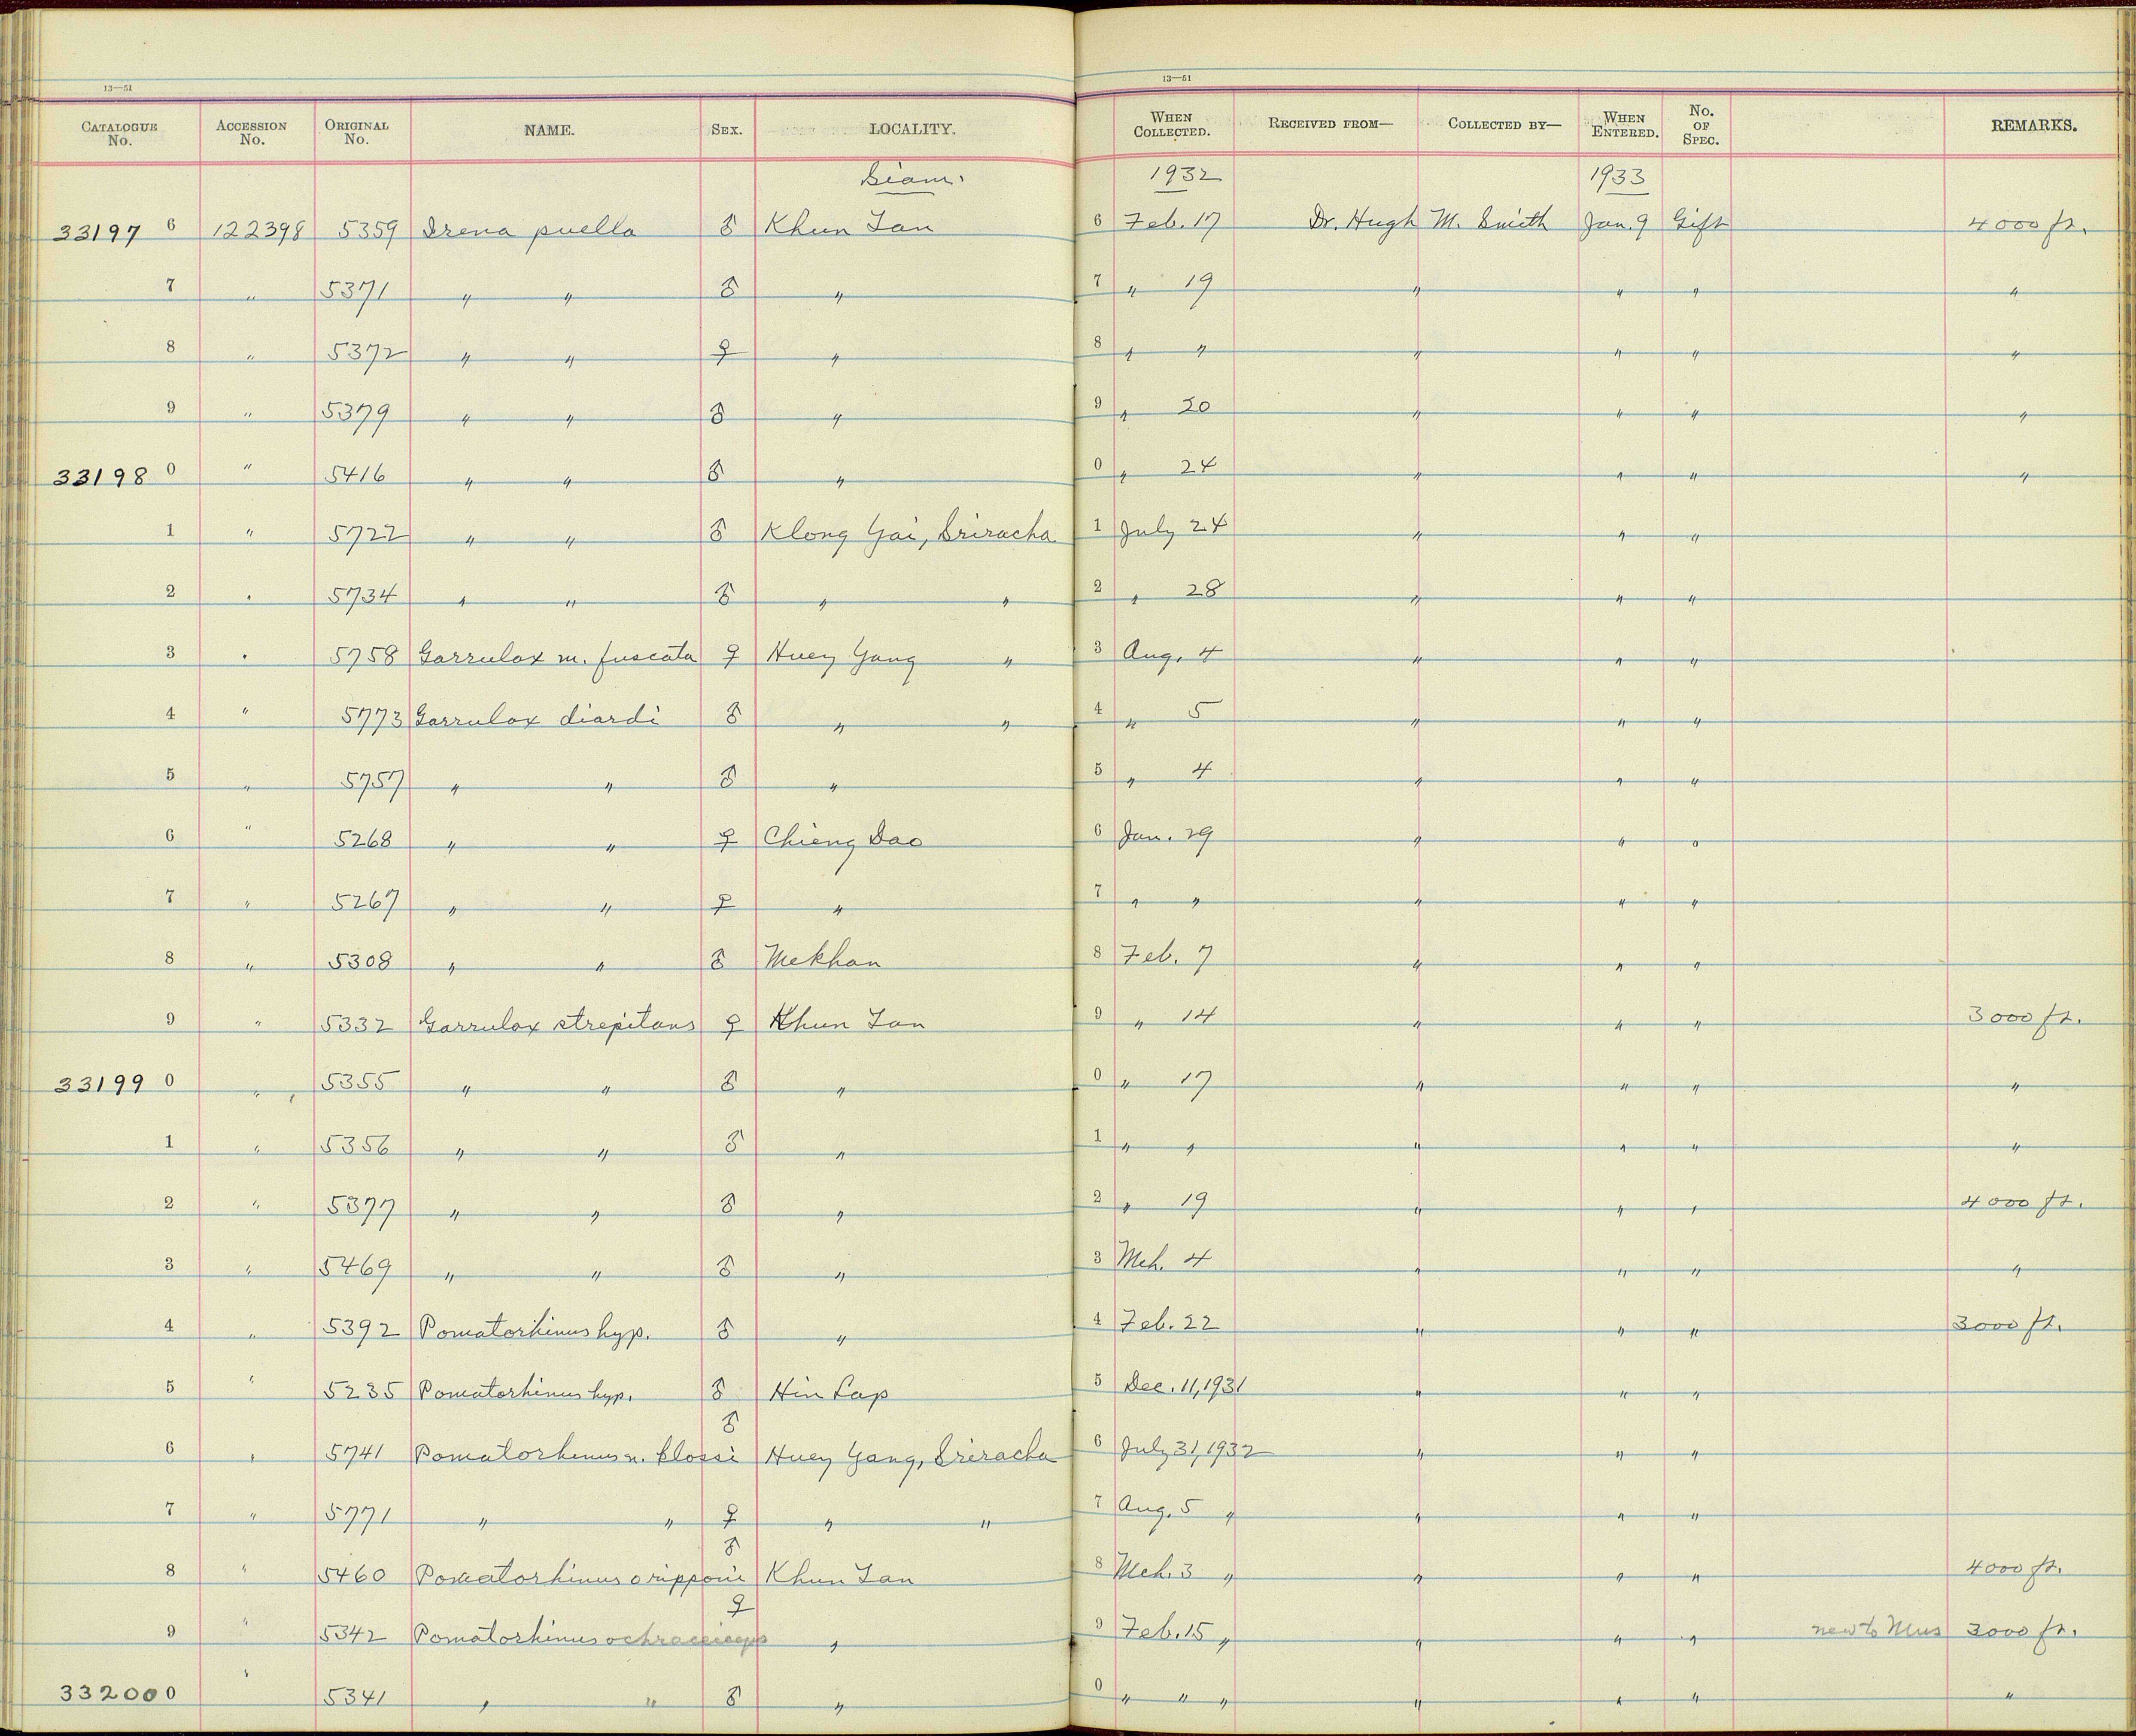 13—51
13—51
CATALOGUE No. ACCESSION No. ORIGINAL No. NAME. SEX. LOCALITY. WHEN COLLECTED. RECEIVED FROM— COLLECTED BY— WHEN ENTERED. No. OF SPEC. REMARKS.
Siam. 1932 1933
33197 6 122398 5359 Irena puella ♂ Khun Tan 6 Feb. 17 Dr. Hugh M. Smith Jan. 9 Gift 4000 ft.
7 " 5371 " " ♂ " 7 " 19 " " " "
8 " 5372 " " ♀ " 8 " " " " " "
9 " 5379 " " ♂ " 9 " 20 " " " "
33198 0 " 5416 " " ♂ " 0 " 24 " " " "
1 " 5722 " " ♂ Klong Yai, Sriracha 1 July 24 " " "
2 " 5734 " " ♂ " " 2 " 28 " " "
3 " 5758 Garrulax m. fuscata ♀ Huey Yang " 3 Aug. 4 " " "
4 " 5773 Garrulax diardi ♂ " " 4 " 5 " " "
5 " 5757 " " ♂ " 5 " 4 " " "
6 " 5268 " " ♀ Chieng Dao 6 Jan. 29 " " "
7 " 5267 " " ♀ " 7 " " " " "
8 " 5308 " " ♂ Mekhan 8 Feb. 7 " " "
9 " 5332 Garrulax strepitans ♀ Khun Tan 9 " 14 " " " 3000 ft.
33199 0 " 5355 " " ♂ " 0 " 17 " " " "
1 " 5356 " " ♂ " 1 " " " " " "
2 " 5377 " " ♂ " 2 " 19 " " " 4000 ft.
3 " 5469 " " ♂ " 3 Mch. 4 " " " "
4 " 5392 Pomatorhinus hyp. ♂ " 4 Feb. 22 " " " 3000 ft.
5 " 5235 Pomatorhinus hyp. ♂ Hin Lap 5 Dec. 11, 1931 " " "
6 " 5741 Pomatorhinus n. klossi ♂ Huey Yang, Sriracha 6 July 31, 1932 " " "
7 " 5771 " " ♀ " " 7 Aug. 5 " " " "
8 " 5460 Pomatorhinus o ripponi ♂ Khun Tan 8 Mch. 3 " " " " 4000 ft.
9 " 5342 Pomatorhinus ochraceiceps ♀ " 9 Feb. 15 " " " " new to Mus 3000 ft.
33200 0 " 5341 " " ♂ " 0 " " " " " " "